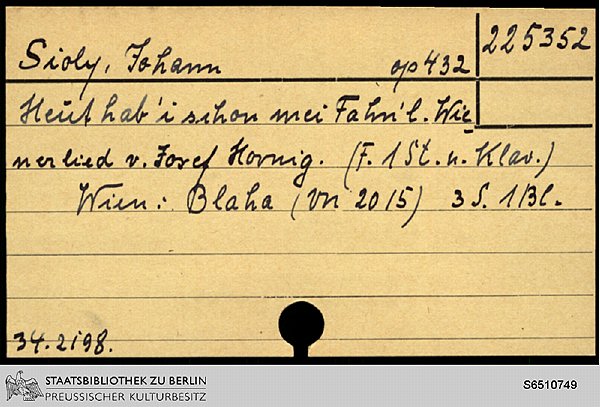 225352
Sioly, Johann op 432
Heut hab' i schon mei Fahn'l. Wie
nerlied v. Josef Hornig. (F. 1 St. u. Klav.)
Wien: Blaha (Vn 2015) 3 S. 1 Bl.
34.2198.
STAATSBIBLIOTHEK ZU BERLIN
PREUSSISCHER KULTURBESITZ
S6510749